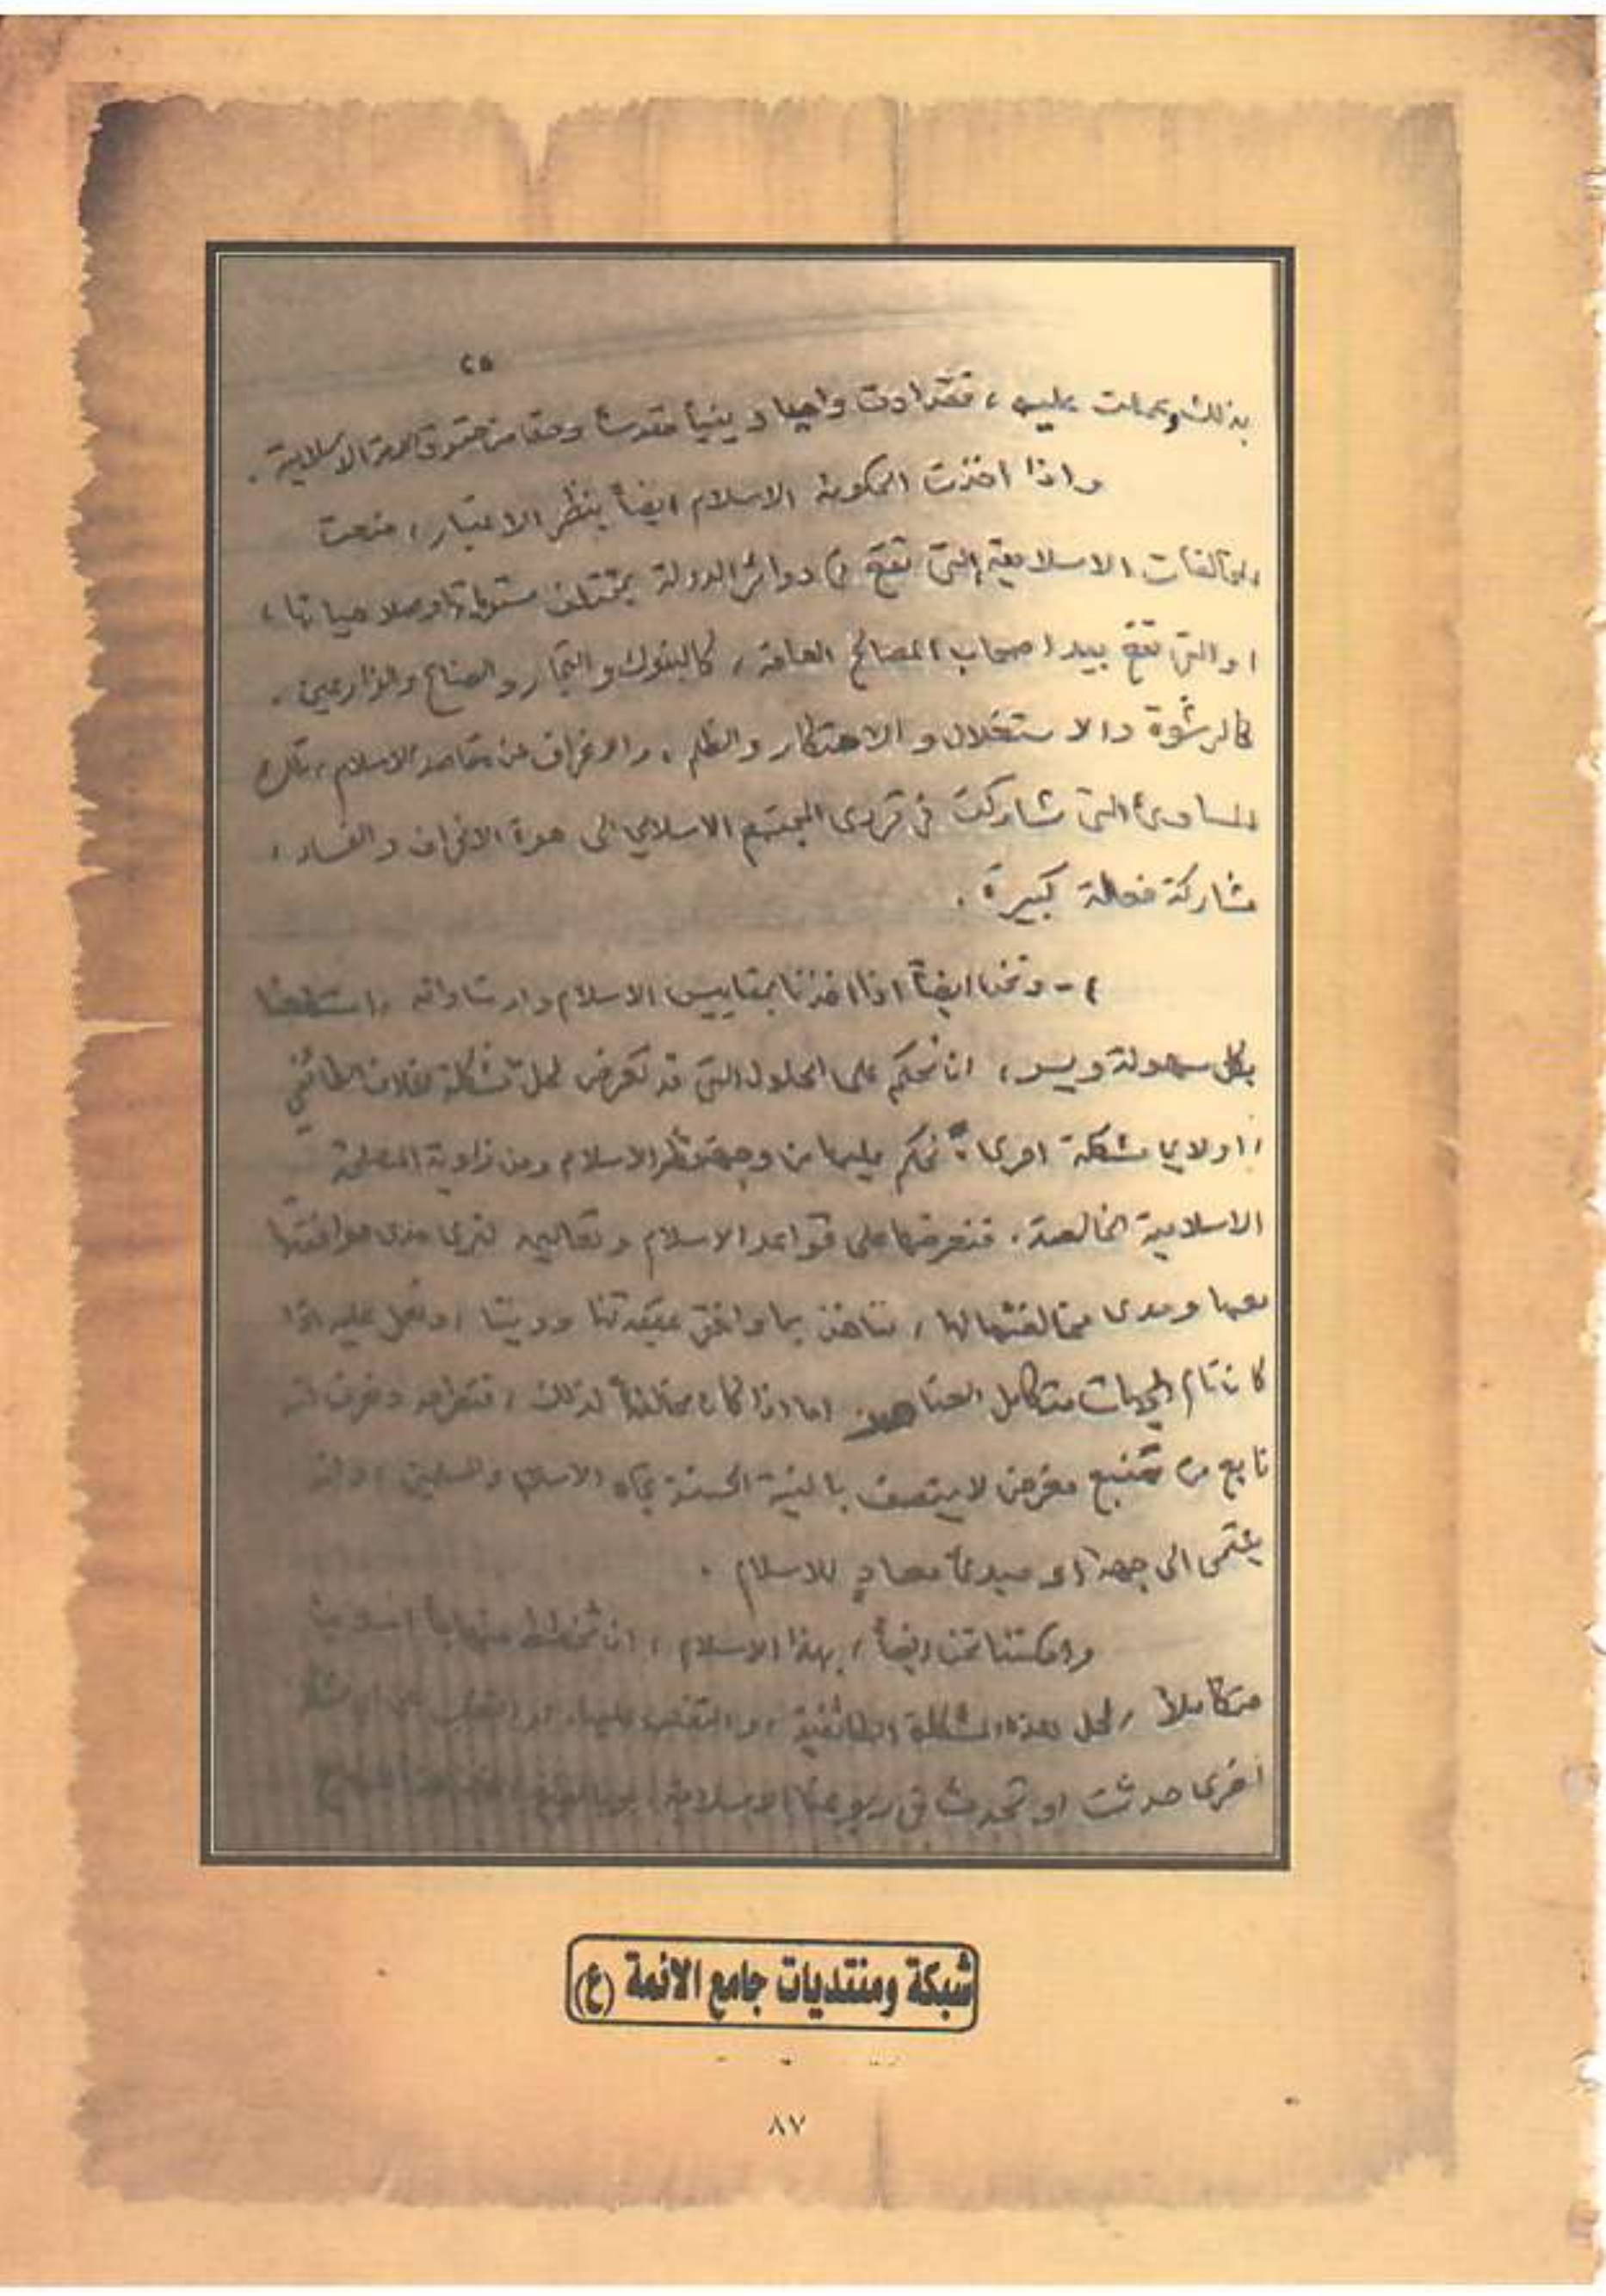 ٢٥
بذلك وعملت عليه ، فقد ادت واجبا دينياً مقدساً وحقا من حقوق الامة الاسلامية .
واذا اخذت الحكومة الاسلام ايضاً بنظر الاعتبار ، منعت
المخالفات الاسلامية التي تقع في دوائر الدولة بمختلف مستوياتها وصلاحياتها ،
او التي تقع بيد اصحاب المصالح العامة ، كالبنوك والتجار والصناع والمزارعين .
كالرشوة والاستغلال والاحتكار والظلم ، والانحراف عن مقاصد الاسلام ، تلك
المساوئ التي شاركت في تردى المجتمع الاسلامي الى هوة الانحراف والفساد ،
مشاركة فعالة كبيرة .
٤ - ونحن ايضاً اذا اخذنا بمقاييس الاسلام وارشاداته ، استطعنا
بكل سهولة ويسر ، ان نحكم على الحلول التي قد تعرض لحل مشكلة الخلاف الطائفي
او لاي مشكلة اخرى ، نحكم عليها من وجهة نظر الاسلام ومن زاوية المصلحة
الاسلامية الخالصة . فنعرضها على قواعد الاسلام وتعاليمه لنرى مدى موافقتها
معها ومدى مخالفتها لها ، فنأخذ بما وافق عقيدتنا وديننا ، ونعمل عليه اذا
كان تام الجهات متكامل العناصر اما اذا كان مخالفاً لذلك ، فنعرف انه
نابع من منبع مغرض لا يتصف بالنية الحسنة تجاه الاسلام والمسلمين ، وانه
ينتمى الى جهة او مبدئ معادٍ للاسلام .
وامكننا نحن ايضاً ، بهذا الاسلام ، ان نخطط منهاجاً اسلامياً
متكاملاً ، لحل هذه المشكلة الطائفية ، والتغلب عليها ، او التغلب على اي مشكلة
اخرى حدثت او تحدث في ربوعنا الاسلامية .
شبكة ومنتديات جامع الائمة (ع)
٨٧